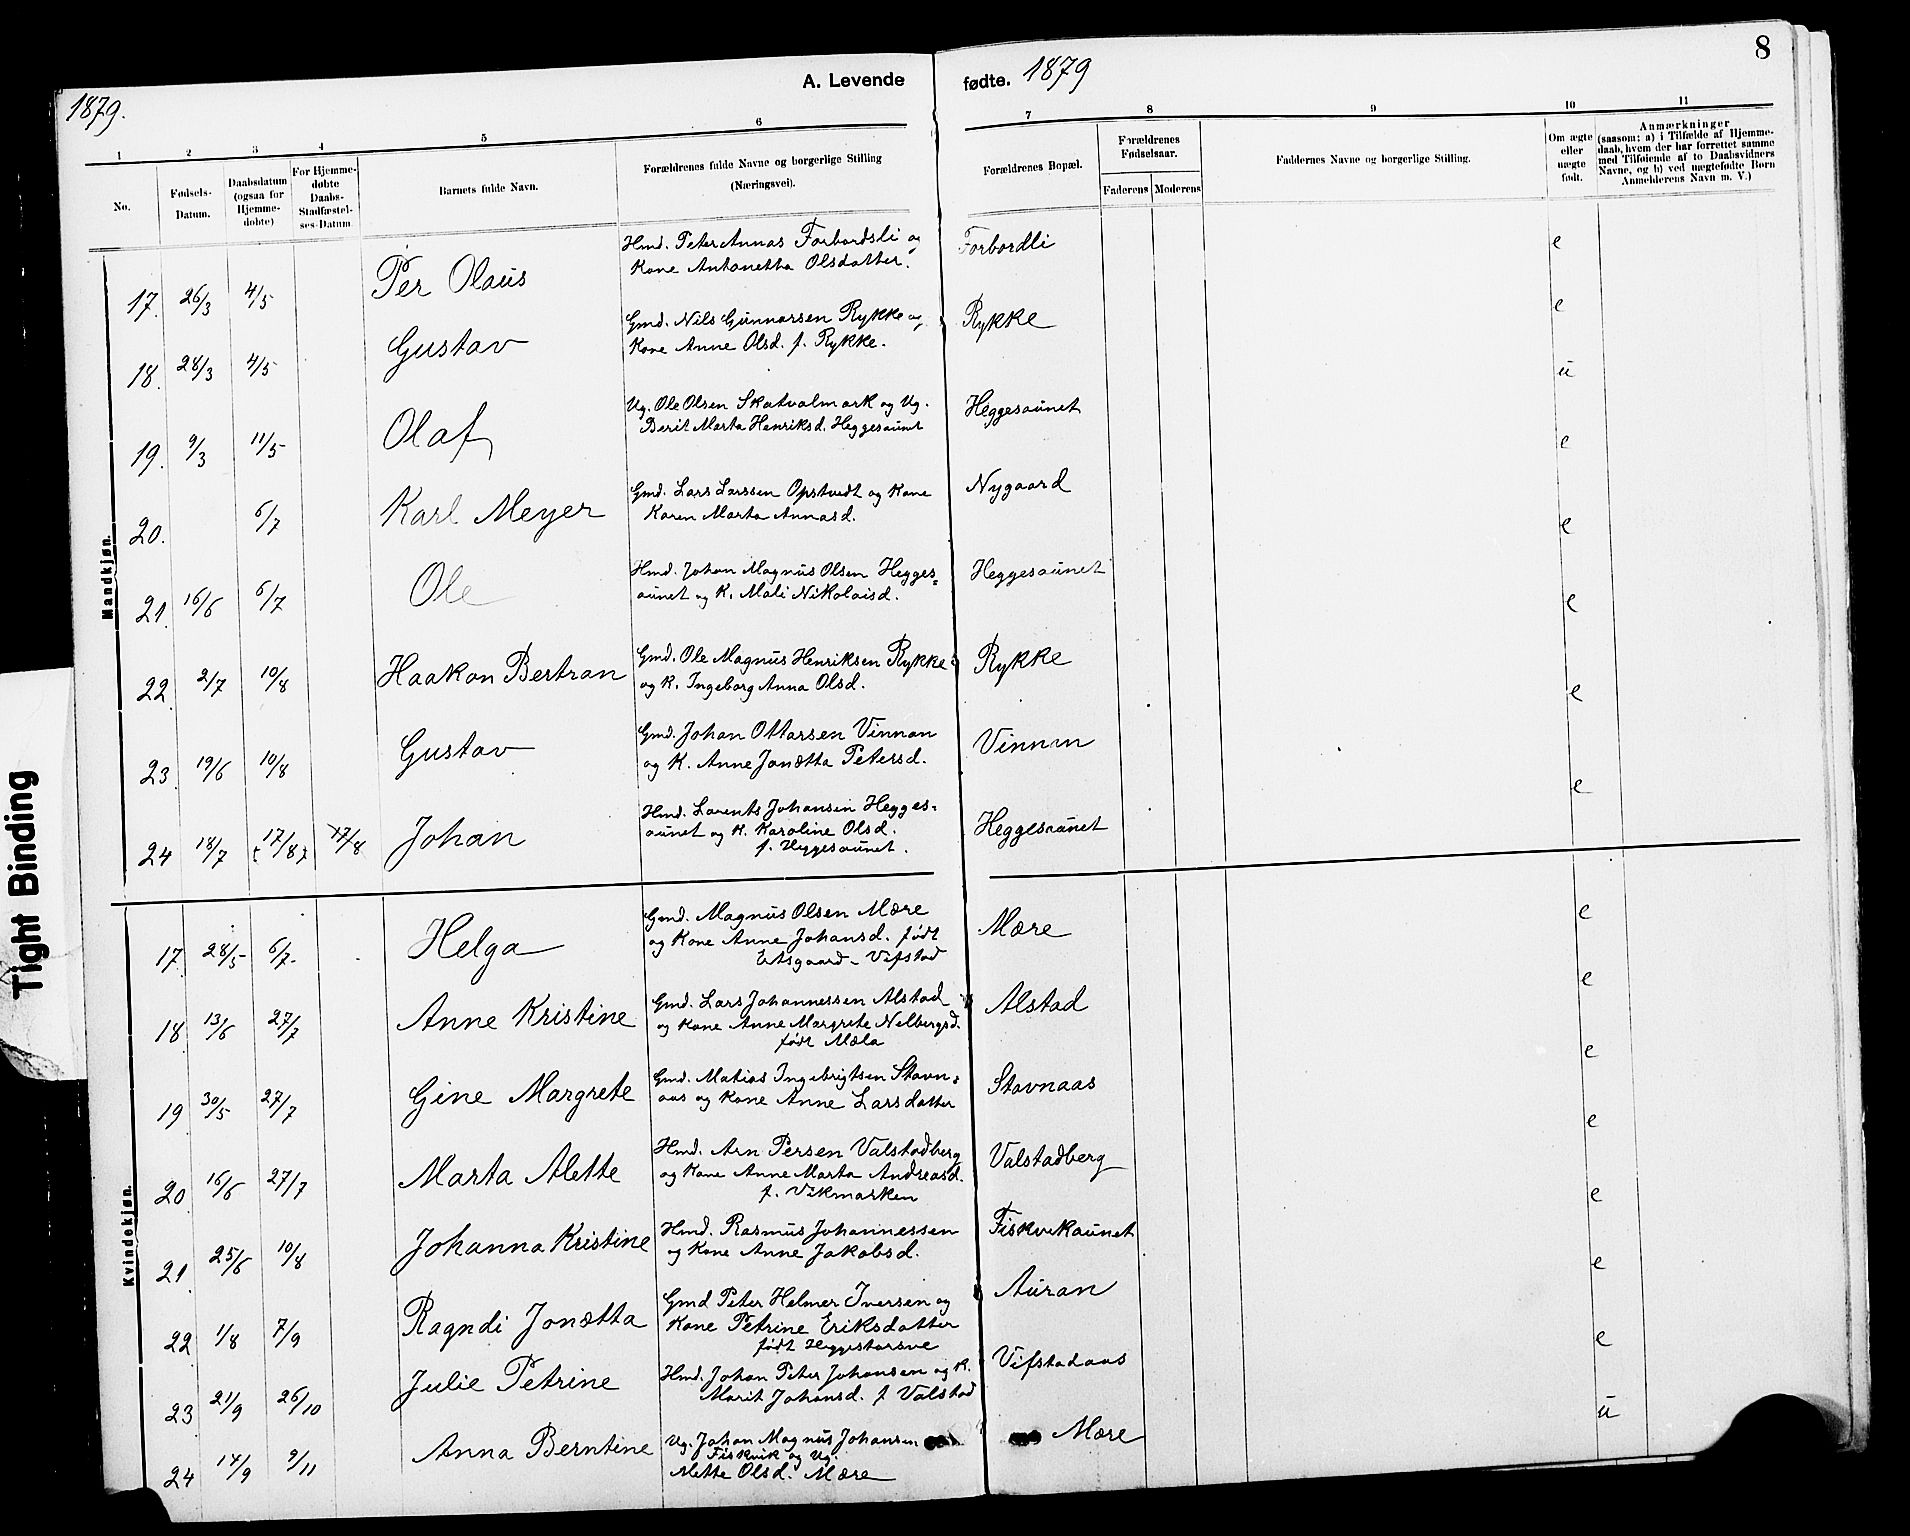 8
A. Levende fødte. 1879
1879.
1 2 3 4 5 6 7 8 9 10 11
No.
Fødsels-
Datum.
Daabsdatum
(ogsaa for
Hjemme-
døbte)
For Hjemme-
døbte
Daabs-
Stadfæstel-
ses-Datum
Barnets fulde Navn.
Forældrenes fulde Navne og borgerlige Stilling
(Næringsvei).
Forældrenes Bopæl.
Forældrenes
Fødselsaar.
Faderens Moderens
Faddernes Navne og borgerlige Stilling.
Om ægte
eller
uægte
født.
Anmærkninger
(saasom: a) i Tilfælde af Hjemme-
daab, hvem der har forrettet samme
med Tilføiende af to Daabsvidners
Navne, og b) ved uægtefødte Børn
Anmelderens Navn m. V.)
Mandkjøn.
17. 26/3 4/5 Per Olaus
Hmd. Peter Annas Forbordsli og
Kone Antonetta Olsdatter.
Forbordli e
18. 28/3 4/5 Gustav
Gmd. Nils Gunnarsen Rykke og
Kone Anne Olsd. f. Rykke.
Rykke e
19. 9/3 11/5 Olaf
Ug. Ole Olsen Skatvalmark og Ug.
Berit Marta Henriksd. Heggesaunet
Heggesaunet u
20. 6/7 Karl Meyer
Gmd. Lars Larssen Opstvedt og Kone
Karen Marta Annasd.
Nygaard e
21. 16/6 6/7 Ole
Hmd. Johan Magnus Olsen Hegges=
aunet og K. Mali Nikolaisd.
Heggesaunet e
22. 2/7 10/8 Haakon Bertran
Gmd. Ole Magnus Henriksen Rykke
og K. Ingeborg Anna Olsd.
Rykke e
23 19/6 10/8 Gustav
Gmd. Johan Ottarsen Vinnan
og K. Anne Jonetta Petersd.
Vinnan e
24 18/7 17/8 17/8 Johan
Hmd. Lorents Johansen Hegges=
aunet og K. Karoline Olsd.
f. Heggesaunet.
Heggesaunet e
Kvindekjøn.
17 28/5 6/7 Helga
Gmd. Magnus Olsen Mære
og Kone Anne Johansd. født
Vifstad
Mære e
18 13/6 27/7 Anne Kristine
Gmd. Lars Johannessen Alstad
og Kone Anne Margrete Nelbergsd.
født Mæla
Alstad e
19 30/5 27/7 Gine Margrete
Gmd. Matias Ingebrigtsen Stavn=
aas og Kone Anne Larsdatter
Stavnaas e
20 16/6 27/7 Marta Alette
Hmd. Arn Persen Valstadberg
og Kone Anne Marta Andreasd.
f. Vikmarken
Valstadberg e
21 25/6 10/8 Johanna Kristine
Hmd. Rasmus Johannessen
og Kone Anne Jakobsd.
Fiskvekaunet e
22 1/8 7/9 Ragndi Jonetta
Gmd Peter Helmer Iversen og
Kone Petrine Eriksdatter
født
Auran e
23 21/9 26/10 Julie Petrine
Hmd. Johan Peter Johansen og K.
Marit Johansd. f Valstad
Vifstadaas e
24 14/9 9/11 Anna Berntine
Ug. Johan Magnus Johansen
Fiskvik og Ug.
Mette Olsd. Mære
Mære u
Tight Binding